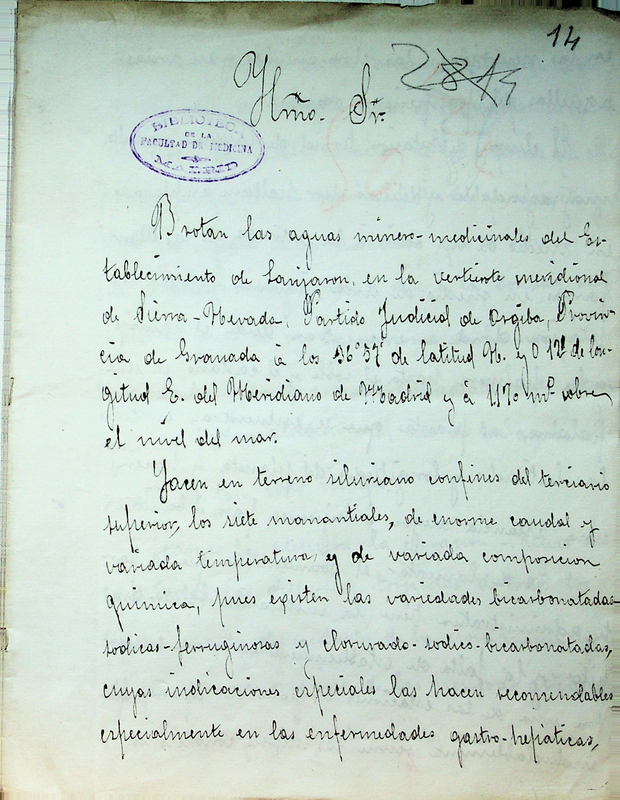 14
Ylmo. Sr.
BIBLIOTECA
DE LA
FACULTAD DE MEDICINA
MADRID
Brotan las aguas minero-medicinales del Es-
tablecimiento de Lanjaron, en la vertiente meridional
de Sierra-Nevada, Partido Judicial de Orgiba, Provin-
cia de Granada á los 36°57' de latitud N. y 0 12' de lon-
gitud E. del Meridiano de Madrid y á 1170 ms sobre
el nivel del mar.
Yacen en terreno siluriano confines del terciario
superior, los siete manantiales, de enorme caudal y
variada temperatura y de variada composicion
quimica, pues existen las variedades bicarbonatadas
sodicas-ferruginosas y clorurado-sodico-bicarbonatadas,
cuyas indicaciones especiales las hacen recomendables
especialmente en las enfermedades gastro-hepáticas,